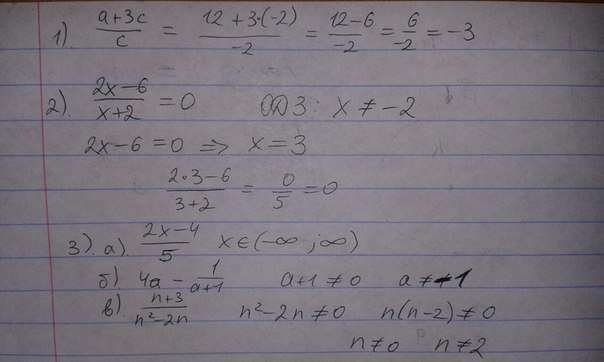 1). (a+3c)/c = (12+3·(-2))/-2 = (12-6)/-2 = 6/-2 = -3
2). (2x-6)/(x+2) = 0 ОДЗ: x ≠ -2
2x-6=0 ⇒ x=3
(2·3-6)/(3+2) = 0/5 = 0
3). а). (2x-4)/5 x∈(-∞;∞)
б) 4a - 1/(a+1) a+1≠0 a≠-1
в) (n+3)/(n²-2n) n²-2n≠0 n(n-2)≠0
n≠0 n≠2